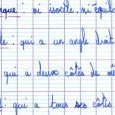 que : ni isocèle, ni équil
le : qui a un angle droit
qui a deux côtés de mê
: qui a tous ses côtés